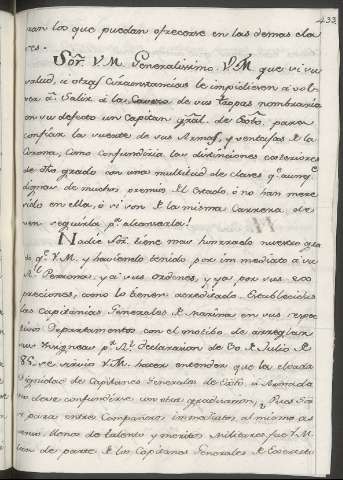 433
ran los que puedan ofrecerse en las demas cla
ses.
Sor. V.M. Generalissimo. V.M. que si su
salud, u otras circunstancias le impidiesen a vol-
ver a Salir à la de sus tropas nombraria
en su defecto un Capitan gral. de Exto. para
confiar la suerte de sus Armas, y ventajas de la
Corona, como confundiria las distinciones exteriores
de dho grado con una multitud de clases qe. aunqe.
dignas de muchos premios del Estado, ò no han mere
cido en ella, ò si son de la misma Carrera, de-
ven seguirla pa. alcanzarla!
Nadie Sor. tiene mas honrrado nuestro gra
do qe. V.M. y haviendo tenido por inmediato à su
Rl. Persona, ya sus ordenes, y ya por sus ex-
presiones, como lo tienen acreditado. Establecidas
las Capitanias Generales de Marina en sus respec
tivos Departamentos con el motibo de arreglar
sus Insignias pr. Rl. declaracion de 30 de Julio de
86, se sirvio V.M. hacer entender que la elevada
Dignidad de Capitanes Generales de Exto. ò Armada
no deve confundirse con otra graduacion; Pues Sor.
para entre Compañeros inmediatos al mismo as
censo, llenos de talento y meritos Militares, fue V.M.
de parte de los Capitanes Generales de Exercito